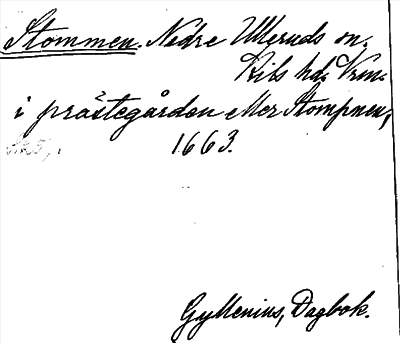 Stommen. Nedre Ulleruds sn.
Kils hd. Vrm.
i prästegården eller Stompnen,
1663.
Gyllenius, Dagbok.